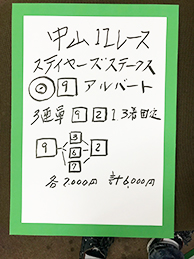 中山12レース
ステイヤーズステークス
◎ 9 アルバート
3連単 9 2 1 3着固定
9 3 6 7 2
各2,000円 計6,000円